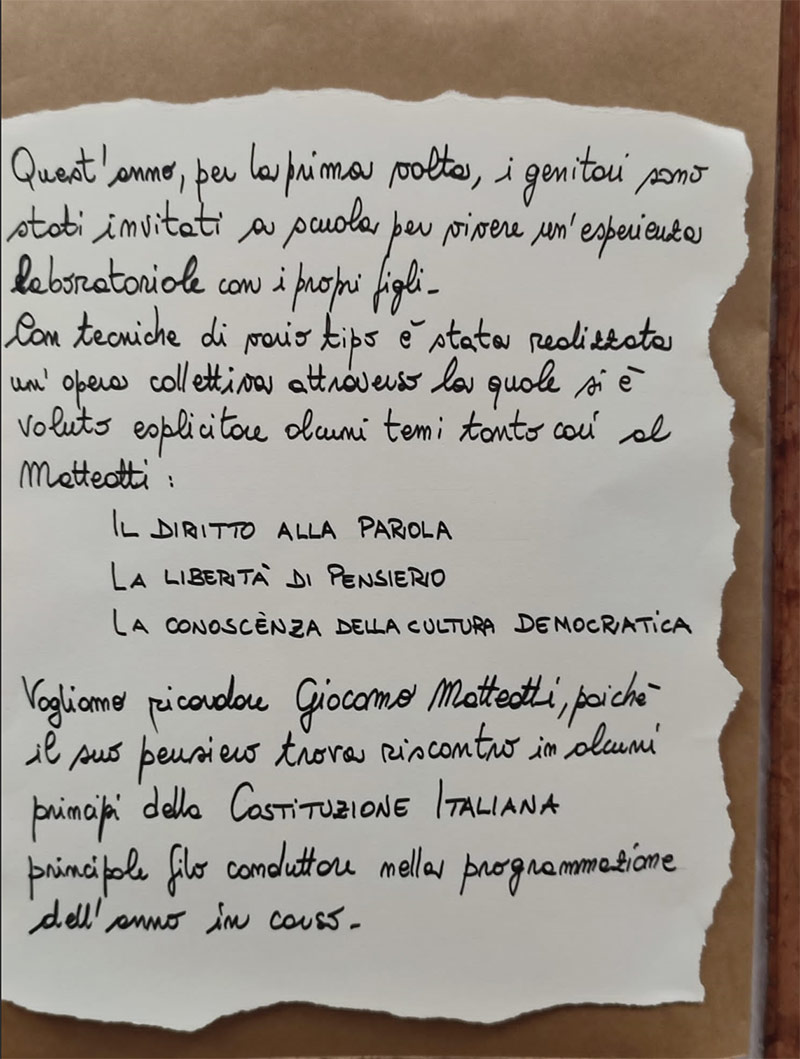 Quest'anno, per la prima volta, i genitori sono
stati invitati a scuola per vivere un'esperienza
laboratoriale con i propri figli-
Con tecniche di vario tipo è stata realizzata
un'opera collettiva attraverso la quale si è
voluto esplicitare alcuni temi tanto cari al
Matteotti:
IL DIRITTO ALLA PAROLA
LA LIBERTÀ DI PENSIERIO
LA CONOSCÈNZA DELLA CULTURA DEMOCRATICA
Vogliamo ricordare Giacomo Matteotti, poichè
il suo pensiero trova riscontro in alcuni
principi della COSTITUZIONE ITALIANA
principale filo conduttore nella programmazione
dell'anno in corso-